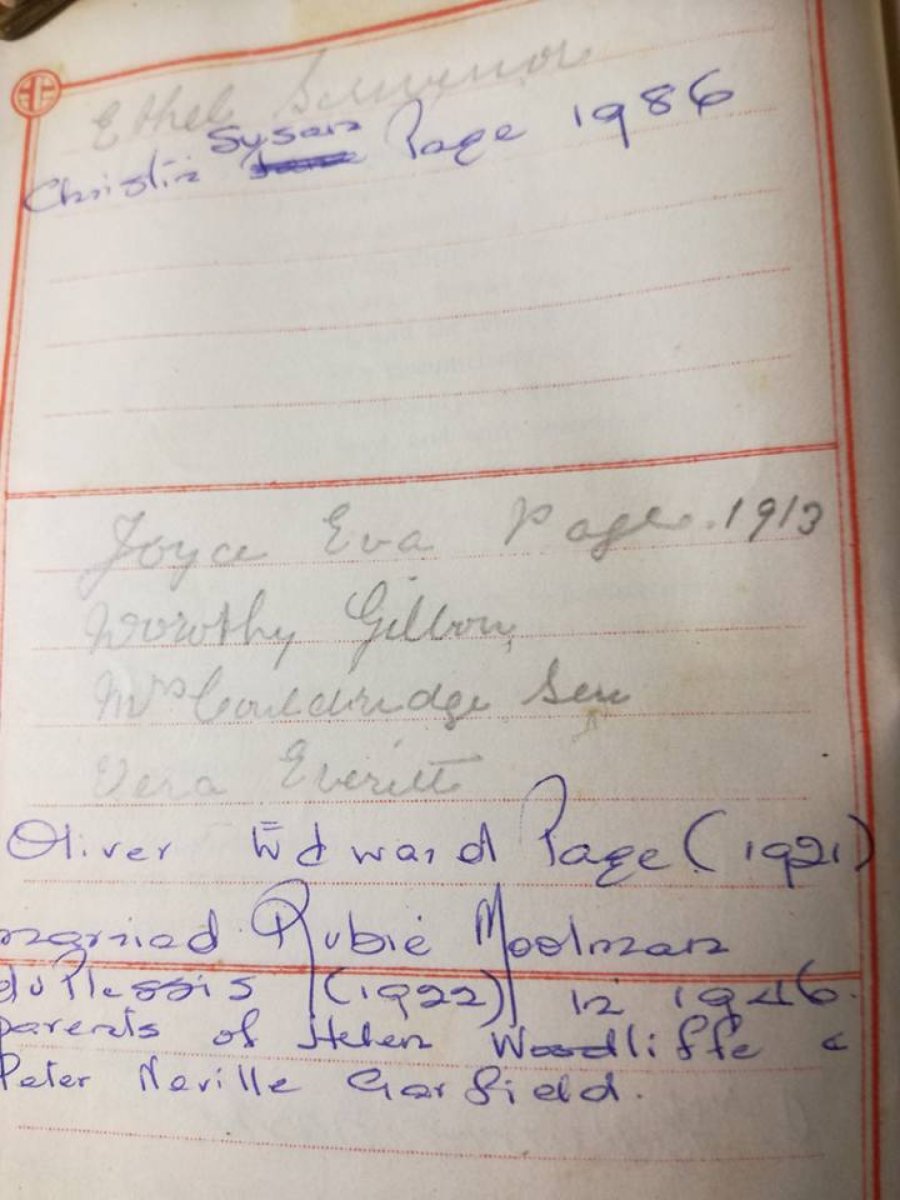 Ethel
Christin Susan Page 1986
Joyce Eva Page. 1913
Dorothy Gilbons
Mrs Couldridge Sen
Vera Everitt
Oliver Edward Page (1921)
married Rubie Moolman
du Plessis (1922) in 1946.
parents of Helen Woodliffe &
Peter Neville Garfield.